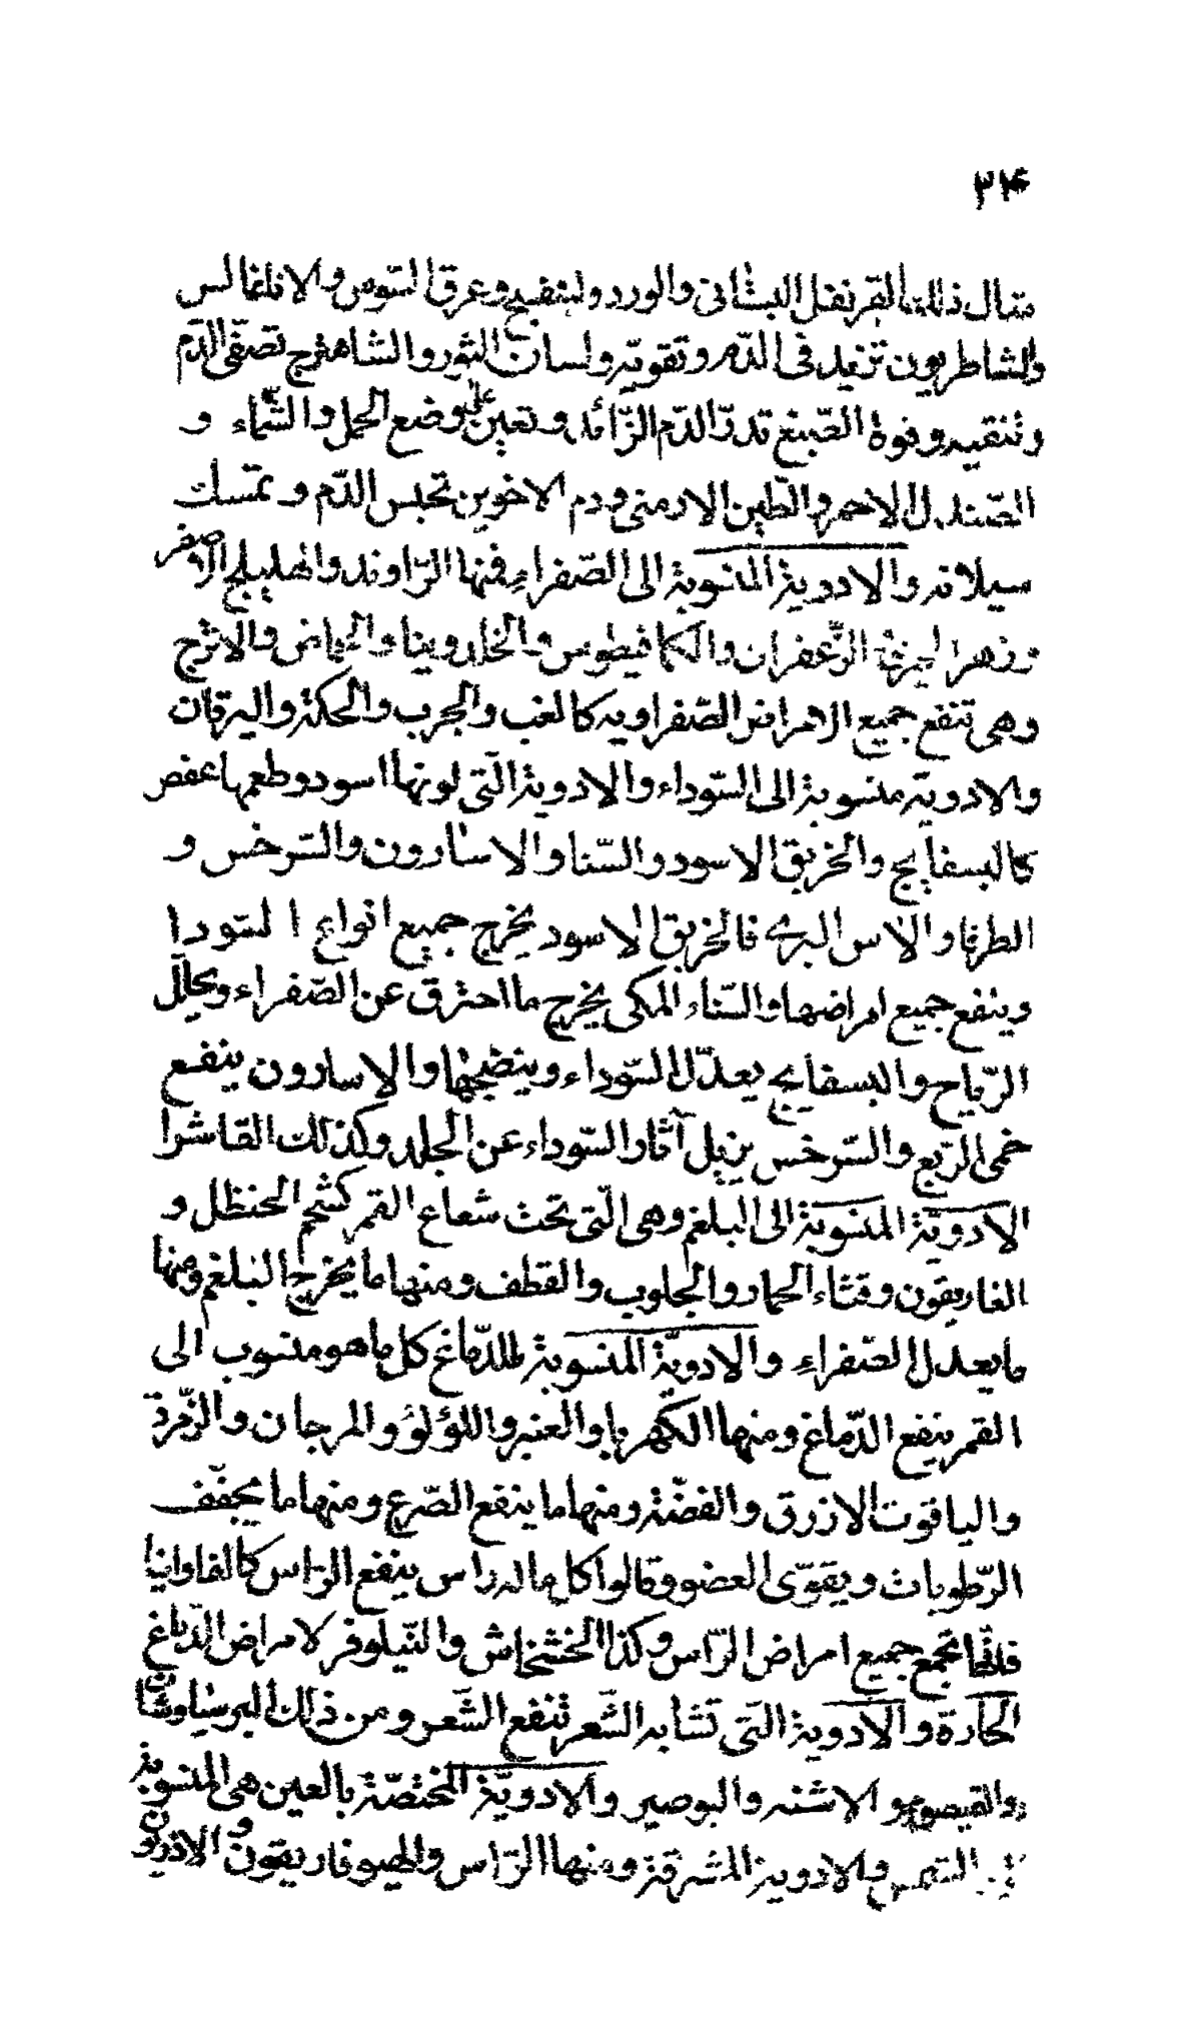 ۳۴
مثال ذلك القرنفل البستانى والورد والبنفسج وعرق السوس والانلغالس
والشاطريون تزيد فى الدّم وتقويّه ولسان الثور والشاهترج تصفّى الدّم
وتنقيه وفوة الصّبغ تدرّ الدّم الزّائد وتعين على وضع الحمل والشّماء و
الصّندل الاحمر والطّين الارمنى ودم الاخوين تحبس الدّم وتمسك
سيلانه والادوية المنسوبة الى الصّفراء فمنها الرّاوند والهليلج الاصفر
وزهر الزّعفران والكمافيطوس والخلدونيا والحماض والاترج
وهى تنفع جميع الامراض الصّفراويه كالغب والجرب والحكة واليرقان
والادويّه منسوبة الى السّوداء والادوية الّتى لونها اسود وطعمها عفص
كالبسفايج والخربق الاسود والسّنا والاسارون والسّرخس و
الطرفا والاس البرى فالخربق الاسود يخرج جميع انواع السّودا
وينفع جميع امراضها والسّناء المكى يخرج ما احترق عن الصّفراء ويحلّل
الرّياح والبسفايج يعدّل السّوداء وينضجها والاسارون ينفع
حمى الرّبع والسّرخس يزيل آثار السّوداء عن الجلد وكذلك القاشرا
الادويّة المنسوبة الى البلغم وهى الّتى تحت شعاع القمر كشحم الحنظل و
الغاريقون وقثاء الحمار والجلوب والقطف ومنها ما يخرج البلغم ومنها
ما يعدل الصّفراء والادويّة المنسوبة للدّماغ كل ما هو منسوب الى
القمر ينفع الدّماغ ومنها الكهربا والعنبر واللؤلؤ والمرجان والزّمردة
والياقوت الازرق والفضّة ومنها ما ينفع الصّرع ومنها ما يجفّف
الرّطوبات ويقوّى العضو وقالوا كل ما له راس ينفع الرّاس كالفاوانيا
فانّها تجمع جميع امراض الرّاس وكذا الخشخاش والنّيلوفر لامراض الدّماغ
الحارة والادوية الّتى تشابه الشّعر تنفع الشّعر ومن ذلك البرسياوشان
والقيصوم والاشنه والبوصير والادويّة المختصّة بالعين هى المنسوبة
الشمس والادوية المشرقة ومنها الرّاس والهيوفاريقون و الاذريون